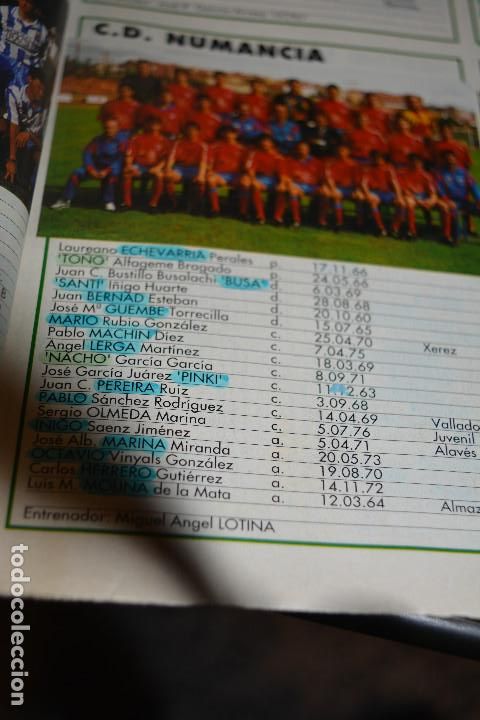 C.D. NUMANCIA
Laureano ECHEVARRIA Perales p. 17.11.66
'TOÑO' Alfageme Bragado p. 24.05.66
Juan C. Bustillo Busalachi 'BUSA' d. 6.03.69
'SANTI' Iñigo Huarte d. 28.08.68
Juan BERNAD Esteban d. 20.10.60
José Mª GUEMBE Torrecilla d. 15.07.65
MARIO Rubio González c. 25.04.70
Pablo MACHIN Diez c. 7.04.75 Xerez
Angel LERGA Martínez c. 18.03.69
'NACHO' García García c. 8.09.71
José García Juárez 'PINKI' c. 2.63
Juan C. PEREIRA Ruiz c. 3.09.68
PABLO Sánchez Rodríguez c. 14.04.69 Vallado
Sergio OLMEDA Marina c. 5.07.76 Juvenil
IÑIGO Saenz Jiménez a. 5.04.71 Alavés
José Alb. MARINA Miranda a. 20.05.73
OCTAVIO Vinyals González a. 19.08.70
Carlos HERRERO Gutiérrez a. 14.11.72
Luis M. MOLINA de la Mata a. 12.03.64 Almaz
Entrenador: Miguel Angel LOTINA
todocoleccion